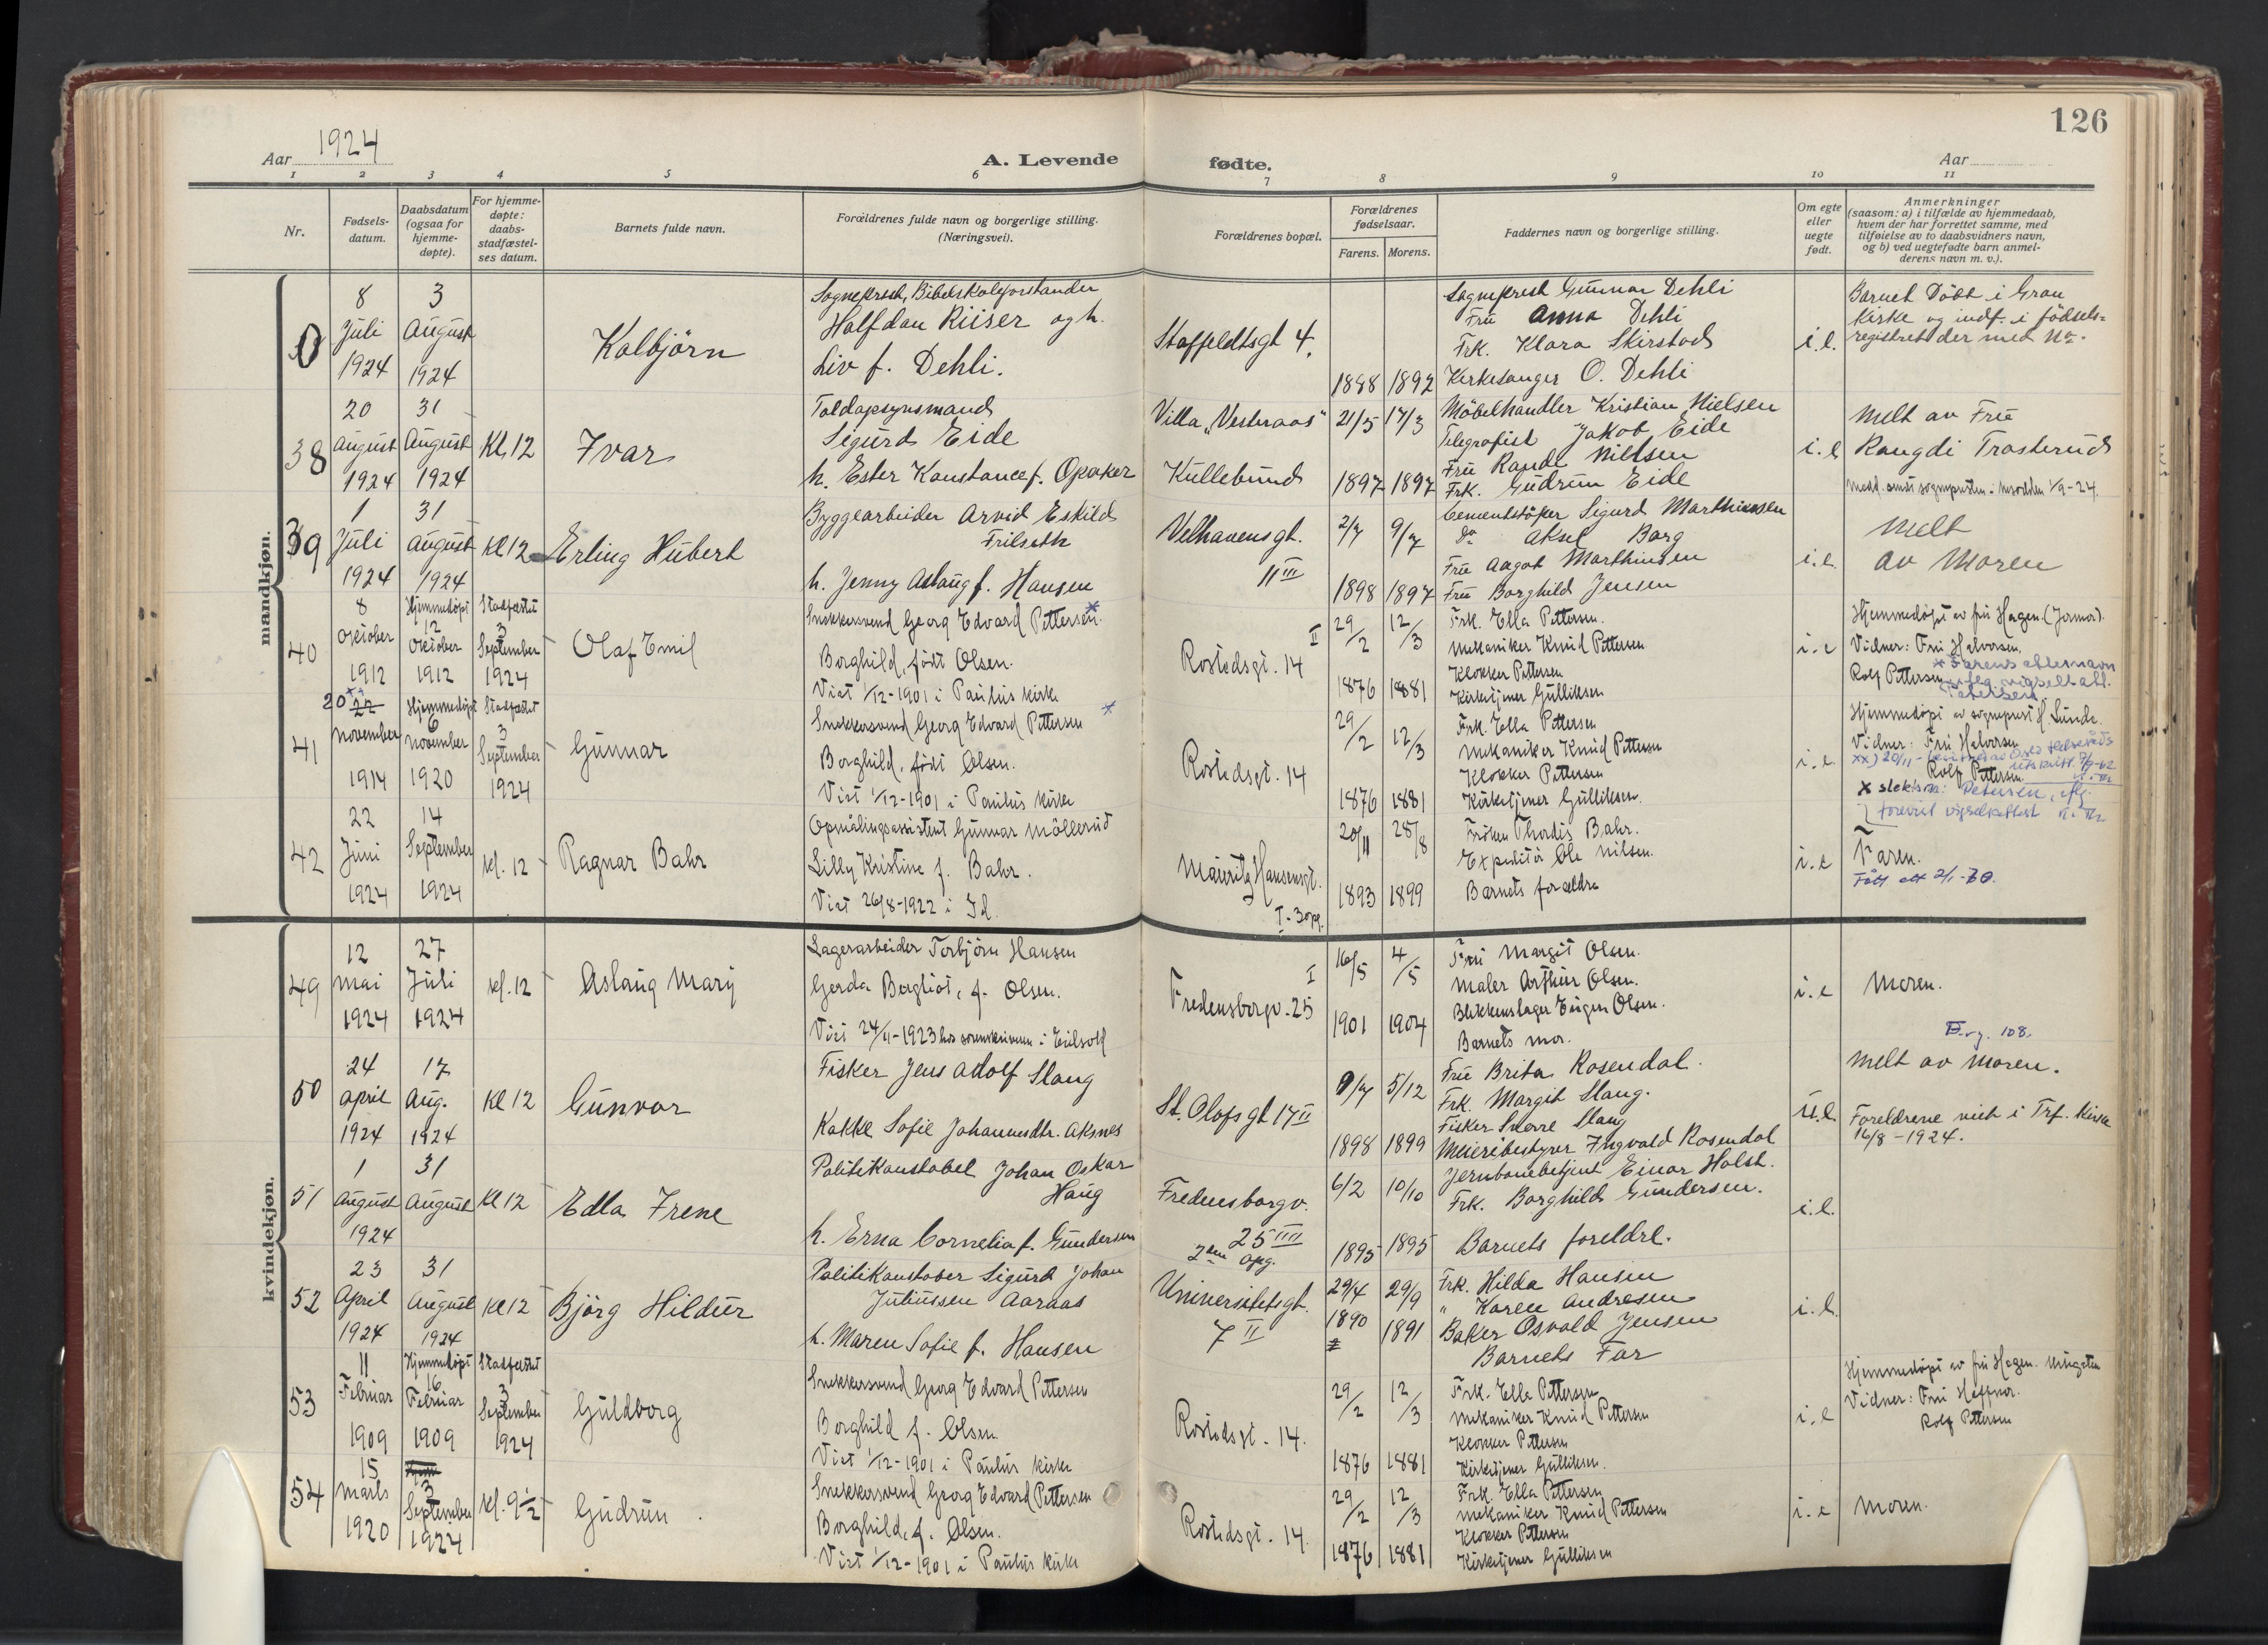 126
Aar 1924
A. Levende fødte.
Aar
1 2 3 4 5 6 7 8 9 10 11
Nr.
Fødsels-
datum.
Daabsdatum
(ogsaa for
hjemme-
døpte).
For hjemme-
døpte:
daabs-
stadfæstel-
ses datum.
Barnets fulde navn.
Forældrenes fulde navn og borgerlige stilling.
(Næringsvei).
Forældrenes bopæl.
Forældrenes
fødselsaar.
Farens. Morens.
Faddernes navn og borgerlige stilling.
Om egte
eller
uegte
født.
Anmerkninger
(saasom: a) i tilfælde av hjemmedaab,
hvem der har forrettet samme, med
tilføielse av to daabsvidners navn,
og b) ved uegtefødte barn anmel-
derens navn m. v.).
mandkjøn.
0
8
Juli
1924
3
August
1924
Kolbjörn
Sogneprest, Bibelskoleforstander
Halfdan Riiser og h.
Liv f. Dehli.
Staffeldtsgt 4.
1888 1892
Sogneprest Gunnar Dehli
Fru Anna Dehli
Frk. Klara Skirstad
Kirkesanger O. Dehli
i.e.
Barnet döbt i Gran
Kirke og indf. i födsels-
registret der med No.
38
20
August
1924
31
August
1924
Kl 12
Ivar
Toldopsynsmand
Sigurd Eide
h. Ester Konstance f. Opaker
Villa "Vesteraas"
Kullebund
21/5 17/3
1897 1897
Möbelhandler Kristian Nielsen
Telegrafist Jakob Eide
Fru Nielsen
Frk. Gudrun Eide
i.e
Melt av Fru
Rangdi Trosterud
39
1
Juli
1924
31
August
1924
Kl 12
Erling Hubert
Byggearbeider Arvid Eskild
Frilseth
h. Jenny Aslaug f. Hansen
Velhavensgt.
11 III
2/7 9/7
1898 1897
Cementstöper Sigurd Marthinsen
do Aksel Borg
Fru Aagot Marthinsen
Fru Borghild Jensen
i.e.
Melt
av Moren
40
8
Oktober
1912
Hjemmedöpt
12
Oktober
1912
Stadfæstet
3
September
1924
Olaf Emil
Snekkersvend Georg Edvard Pettersen
Borghild, födt Olsen.
Viet 1/12-1901 i Paulus kirke
II
Rostedsgt. 14
29/2 12/3
1876 1881
Frk. Ella Pettersen.
Mekaniker Knud Pettersen
Klokker Pettersen
Kirketjener Gulliksen
i.e
Hjemmedöpt av fru Hagen. (Jormor).
Vidner: Fru Halvorsen.
Rolf Pettersen
x Farens etternavn
iflg. vigselsatt.
Petersen
41
20 22
November
1914
Hjemmedöpt
6
November
1920
Stadfæstet
3
September
1924
Gunnar
Snekkersvend Georg Edvard Pettersen
Borghild, födt Olsen.
Viet 1/12-1901 i Paulus kirke
Rostedsgt. 14
29/2 12/3
1876 1881
Frk. Ella Pettersen
Mekaniker Knud Pettersen
Klokker Pettersen
Kirketjener Gulliksen.
i.e
Hjemmedöpt av sogneprest Lunde.
Vidner: Fru Halvorsen
Rolf Pettersen.
x slektsn: Petersen, iflg.
forevist vigselsattest
42
22
Juni
1924
14
September
1924
kl. 12
Ragnar Bahr
Opmålingsassistent Gunnar Möllerud
Lilly Kristine f. Bahr.
Viet 26/8-1922 i
Mauritz Hansensgt.
I. 3 opg.
20/11 28/8
1893 1899
Fröken Thordis Bahr.
Expeditör Ole Nilsen.
Barnets forældre
i.e
Faren.
Fått att 2/1-70.
kvindekjøn.
49
12
Mai
1924
27
Juli
1924
kl. 12
Aslaug Mary
Lagerarbeider Torbjörn Hansen
Gerda Bergliot, f. Olsen.
Viet 24/11-1923 hos sorenskriveren i Eidsvold
I
Fredensborgv. 25
16/5 4/5
1901 1904
Fru Margit Olsen.
Maler Arthur Olsen.
Blikkenslager Eugen Olsen.
Barnets mor.
i.e
Moren.
50
24
April
1924
17
Aug.
1924
Kl 12
Gunvor
Fisker Jens Adolf Slang
Kokke Sofie Johannesdtr. Aksnes
St. Olafsgt 17 II
9/7 5/12
1898 1899
Fru Brita Rosendal.
Frk. Margit Slang.
Fisker Sverre Slang
Meieribestyrer Ingvald Rosendal
u.e.
108.
Melt av Moren.
Foreldrene viet i Trf. kirke
16/8-1924.
51
1
August
1924
31
August
Kl 12
Edla Irene
Politikonstabel Johan Oskar
Haug
h. Erna Cornelia f. Gundersen
Fredensborgv.
25 III
2den opg.
6/2 10/10
1895 1895
Jernbanebetjent Einar Holst.
Frk. Borghild Gundersen.
Barnets foreldre.
i.e.
52
23
April
1924
31
August
1924
Kl 12
Bjørg Hildur
Politikonstabel Sigurd Johan
Juliussen Aaraas
h. Maren Sofie f. Hansen
Universitetsgt.
7 II
29/4 29/9
1890 1891
Frk. Hilda Hansen
" Karen Andresen
Baker Osvald Jensen
Barnets Far
i.e.
53
11
Februar
1909
Hjemmedöpt
16
Februar
1909
Stadfæstet
3
September
1924
Guldborg
Snekkersvend Georg Edvard Pettersen
Borghild f. Olsen.
Viet 1/12-1901 i Paulus kirke
Rostedsgt. 14.
29/2 12/3
1876 1881
Frk. Ella Pettersen
Mekaniker Knud Pettersen
Klokker Pettersen
Kirketjener Gulliksen.
i.e
Hjemmedöpt av fru Hagen.
Vidner: Fru Haffner.
Rolf Pettersen
54
15
Marts
1920
3
September
1924
kl. 9 1/2
Gudrun.
Snekkersvend Georg Edvard Pettersen
Borghild, f. Olsen.
Viet 1/12-1901 i Paulus kirke
Rostedsgt. 14.
29/2 12/3
1876 1881
Frk. Ella Pettersen
Mekaniker Knud Pettersen
Klokker Pettersen
Kirketjener Gulliksen
i.e
Moren.